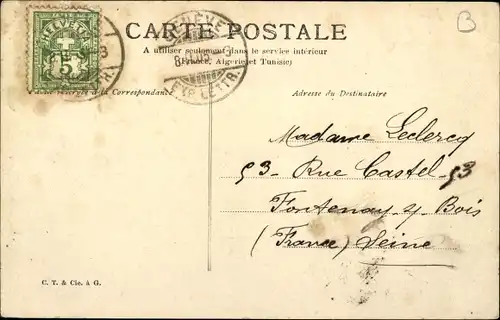 CARTE POSTALE
A utiliser seulement dans le service intérieur
(France, Algérie et Tunisie)
HELVETIA
5
GENÈVE
EXP. LETTR.
B
Partie réservée à la Correspondance
Adresse du Destinataire
Madame Leclercq
53 - Rue Castel - 53
Fontenay s/ Bois
(France) Seine
C. T. & Cie. à G.